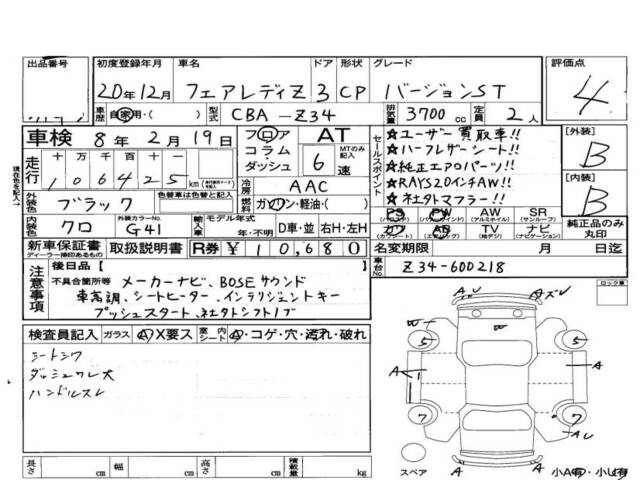 出品番号 初度登録年月 車名 ドア 形状 グレード 評価点
20年12月 フェアレディZ 3 CP バージョンST 4
車歴 自家用・( ) 型式 CBA-Z34 排気量 3700 cc 定員 2人
車検 8年2月19日 フロア AT セールスポイント ★ユーザー買取車!! [外装]
コラム MTのみ記入 ★ハーフレザーシート!! B
走行 十 万 千 百 十 一 ダッシュ 6速 ★純正エアロパーツ!!
106425 冷房 AAC ★RAYS20インチAW!! [内装]
外装色 ブラック 色替車は色替と記入 燃料 ガソリン・軽油・( ) ★社外マフラー!! B
内装色 クロ 外装カラーNo. G41 輸入車 モデル年式 年・不明 D車・並 右H・左H PS PW AW SR
(パワーウインド) (アルミホイル) (サンルーフ)
カワ AB TV ナビ 純正品のみ丸印
(カワシート) (エアバッグ) (地デジ) (ナビゲーション)
新車保証書 取扱説明書 R券 ¥10,680 名変期限 月 日迄
ディーラー捺印あるもの
注意事項 後日品[ ] 車台No. Z34-600218
不具合箇所等 メーカーナビ、BOSEサウンド ロック車
車高調、シートヒーター、インテリジェントキー
プッシュスタート、社外シフトノブ
検査員記入 ガラス A X要ス 室内シート A・コゲ・穴・汚れ・破れ
シートシワ
ダッシュワレ大
ハンドルスレ
AU Aズレ
W W
5 5
A A1 A
7 7
A A
長さ cm 幅 cm 高さ cm 積載量 kg スペア 小A有・小U有
現在色を記入